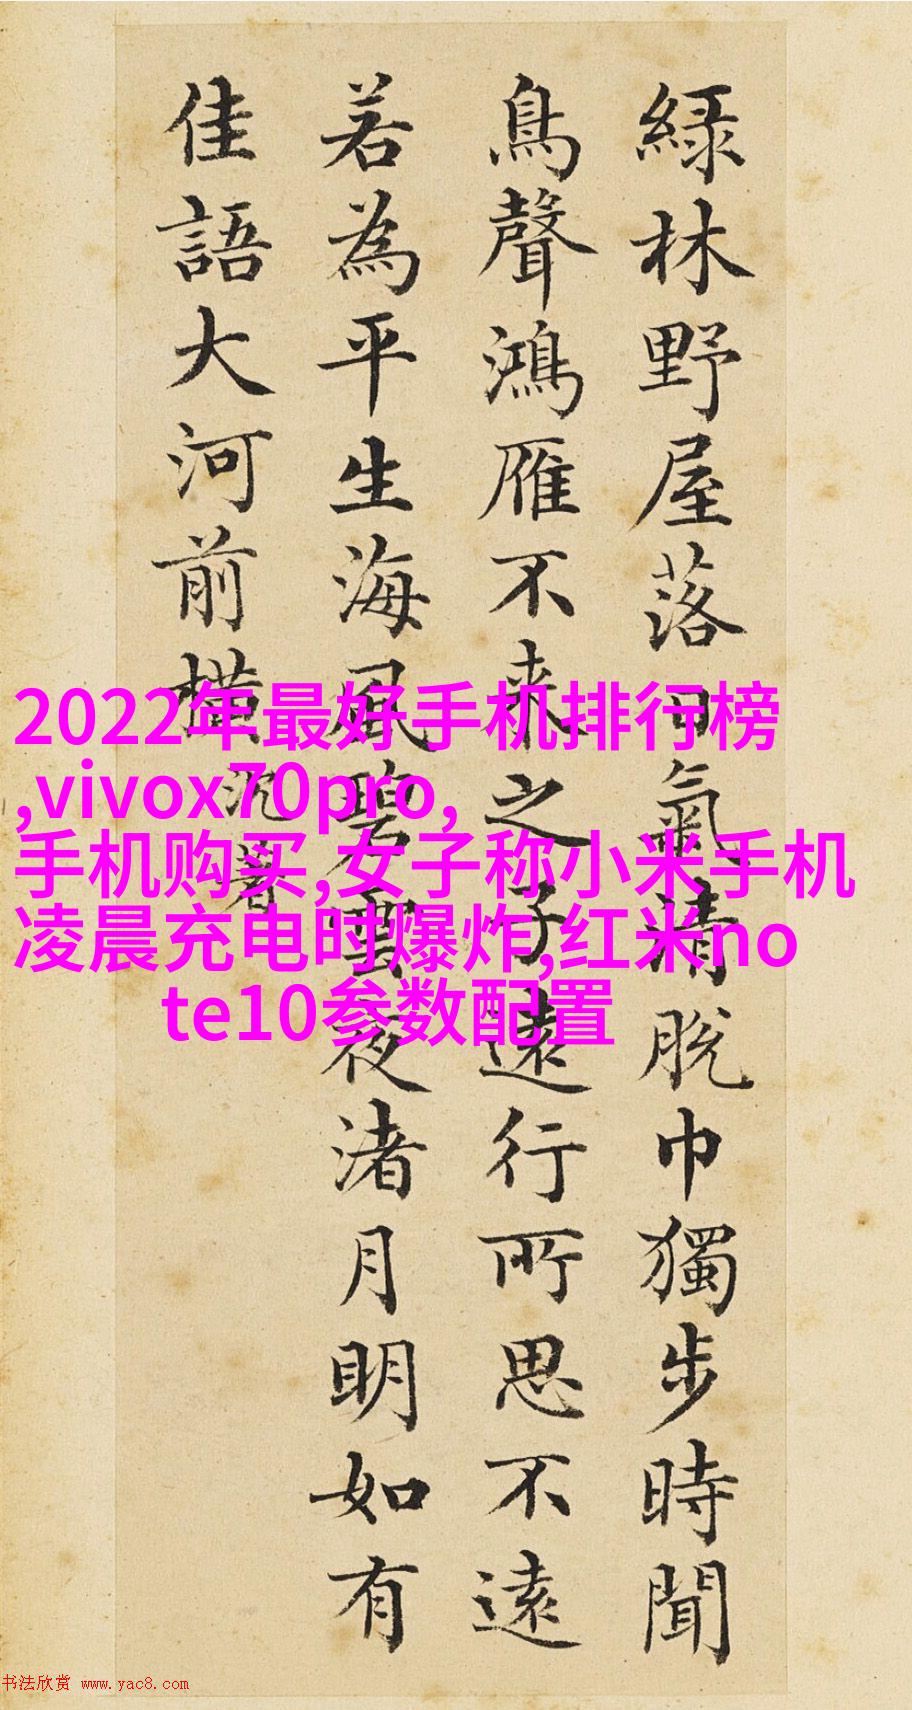 綠林野屋落日氣清脫巾獨步時聞
鳥聲鴻雁不來之子遠行所思不遠
若為平生海風碧雲夜渚月明如有
佳語大河前橫
沉著
2022年最好手机排行榜
,vivox70pro,
手机购买,女子称小米手机
凌晨充电时爆炸,红米no
te10参数配置
书法欣赏 www.yac8.com